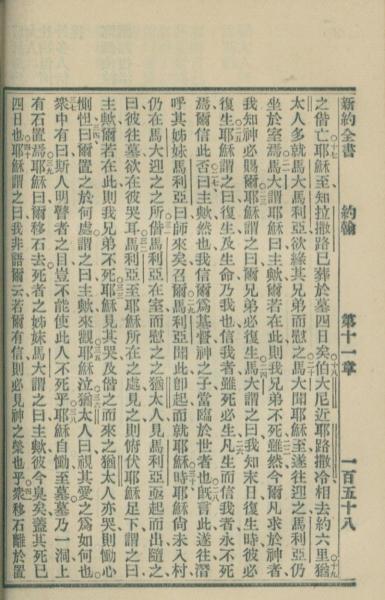 新約全書　約翰　第十一章　一百五十八
之偕亡耶穌至知拉撒路已葬於墓四日矣伯大尼近耶路撒冷相去約六里猶
太人多就馬大馬利亞欲緣其兄弟而慰之馬大聞耶穌至遂往迎之馬利亞仍
坐於室焉馬大謂耶穌曰主歟爾若在此則我兄弟不死雖然今爾凡求於神者
我知神必賜爾耶穌謂之曰爾兄弟必復生馬大謂之曰我知末日復生時彼必
復生耶穌謂之曰復生及生命乃我也信我者雖死必生凡生而信我者永不死
焉爾信此否曰主歟然也我信爾爲基督神之子當臨於世者也旣言此遂往潛
呼其姊妹馬利亞曰師來矣召爾馬利亞聞此卽起而就耶穌時耶穌尙未入村
仍在馬大迎之之所偕馬利亞在室而慰之之猶太人見馬利亞亟起而出隨之
曰彼往墓欲在彼哭耳馬利亞至耶穌所在之處見之則俯伏耶穌足下謂之曰
主歟爾若在此則我兄弟不死耶穌見其哭及偕之而來之猶太人亦哭則心
惻怛曰爾置之於何處謂之曰主歟來觀耶穌泣猶太人曰視其愛之爲如何也
衆中有曰斯人明瞽者之目豈不能使此人不死乎耶穌自慟至墓墓乃一洞上
有石置焉耶穌曰爾移石去死者之姊妹馬大謂之曰主歟彼今臭矣蓋其死已
四日也耶穌謂之曰我非語爾云若爾有信則必見神之榮也乎衆移石離於置